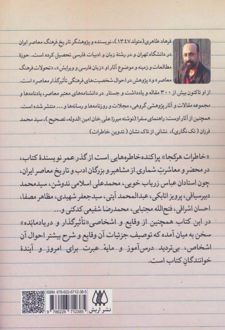 فرهاد طاهری (متولد ۱۳۴۷)، نویسنده و پژوهشگر تاریخ فرهنگ معاصر ایران
در دانشگاه تهران و در رشتۀ زبان و ادبیات فارسی تحصیل کرده است. حوزۀ
مطالعات و زمینه و موضوع آثار او «زبان فارسی و ویرایش»، «تاریخ فرهنگ
معاصر» و «پژوهش در احوال شخصیت‌های فرهنگی تأثیرگذار معاصر» است.
از او تاکنون بیش از ۳۰۰ مقاله و یادداشت و جستار، در دانشنامه‌های معتبر معاصر، یادنامه‌ها و
مجموعه مقالات و آثار پژوهشی گروهی، مجلات و روزنامه‌ها و رسانه‌ها و... منتشر شده است.
همچنین از آثار اوست: راهنمای سفرا (نوشته میرزا علی خان امین الدوله، تصحیح)، سید محمد
فرزان (تک نگاری)، نشانی از تاک نشان (تدوین خاطرات)
«خاطرات هرکجا» پراکنده‌خاطره‌هایی است از گذر عمر نویسندۀ کتاب،
در حضور و معاشرت شماری از مشاهیر و بزرگان ادب و تاریخ معاصر ایران،
چون استادان عباس زریاب خویی، محمدعلی اسلامی ندوشن، سیدمحمد
دبیرسیاقی، پرویز اتابکی، عبدالمحمد آیتی، سیدجعفر شهیدی، مظاهر مصفا،
احسان اشراقی، فتح‌الله مجتبایی، محمدرضا شفیعی کدکنی و...
در این کتاب همچنین از وقایع و اشخاصی «تاثیرگذار و دریادمانده»
سخن به میان آمده که توصیف جزئیات آن وقایع و شرح بیشتر احوال آن
اشخاص، بی‌تردید درس‌آموز و مایۀ عبرت برای امروز و آیندۀ
خوانندگان کتاب است.
نشر آرش